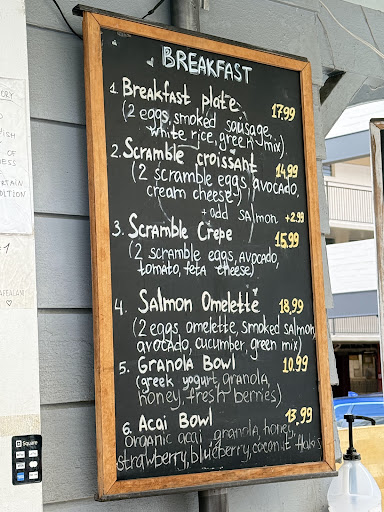 BREAKFAST
1. Breakfast plate 17.99
(2 eggs, smoked sausage,
white rice, green mix).
2. Scramble croissant 14,99
(2 scramble eggs, avocado,
cream cheese)
+ add salmon +2.99
3. Scramble Crepe 15,99
(2 scramble eggs, avocado,
tomato, feta cheese)
4. Salmon Omelette 18,99
(2 eggs omelette, smoked salmon,
avocado, cucumber, green mix)
5. Granola Bowl 10.99
(greek yogurt, granola,
honey, fresh berries)
6. Acai Bowl 13.99
organic acai, granola, honey,
strawberry, blueberry, coconut flakes
ORY
OF
ESS
E
RTAIN
DITION
#1
Square